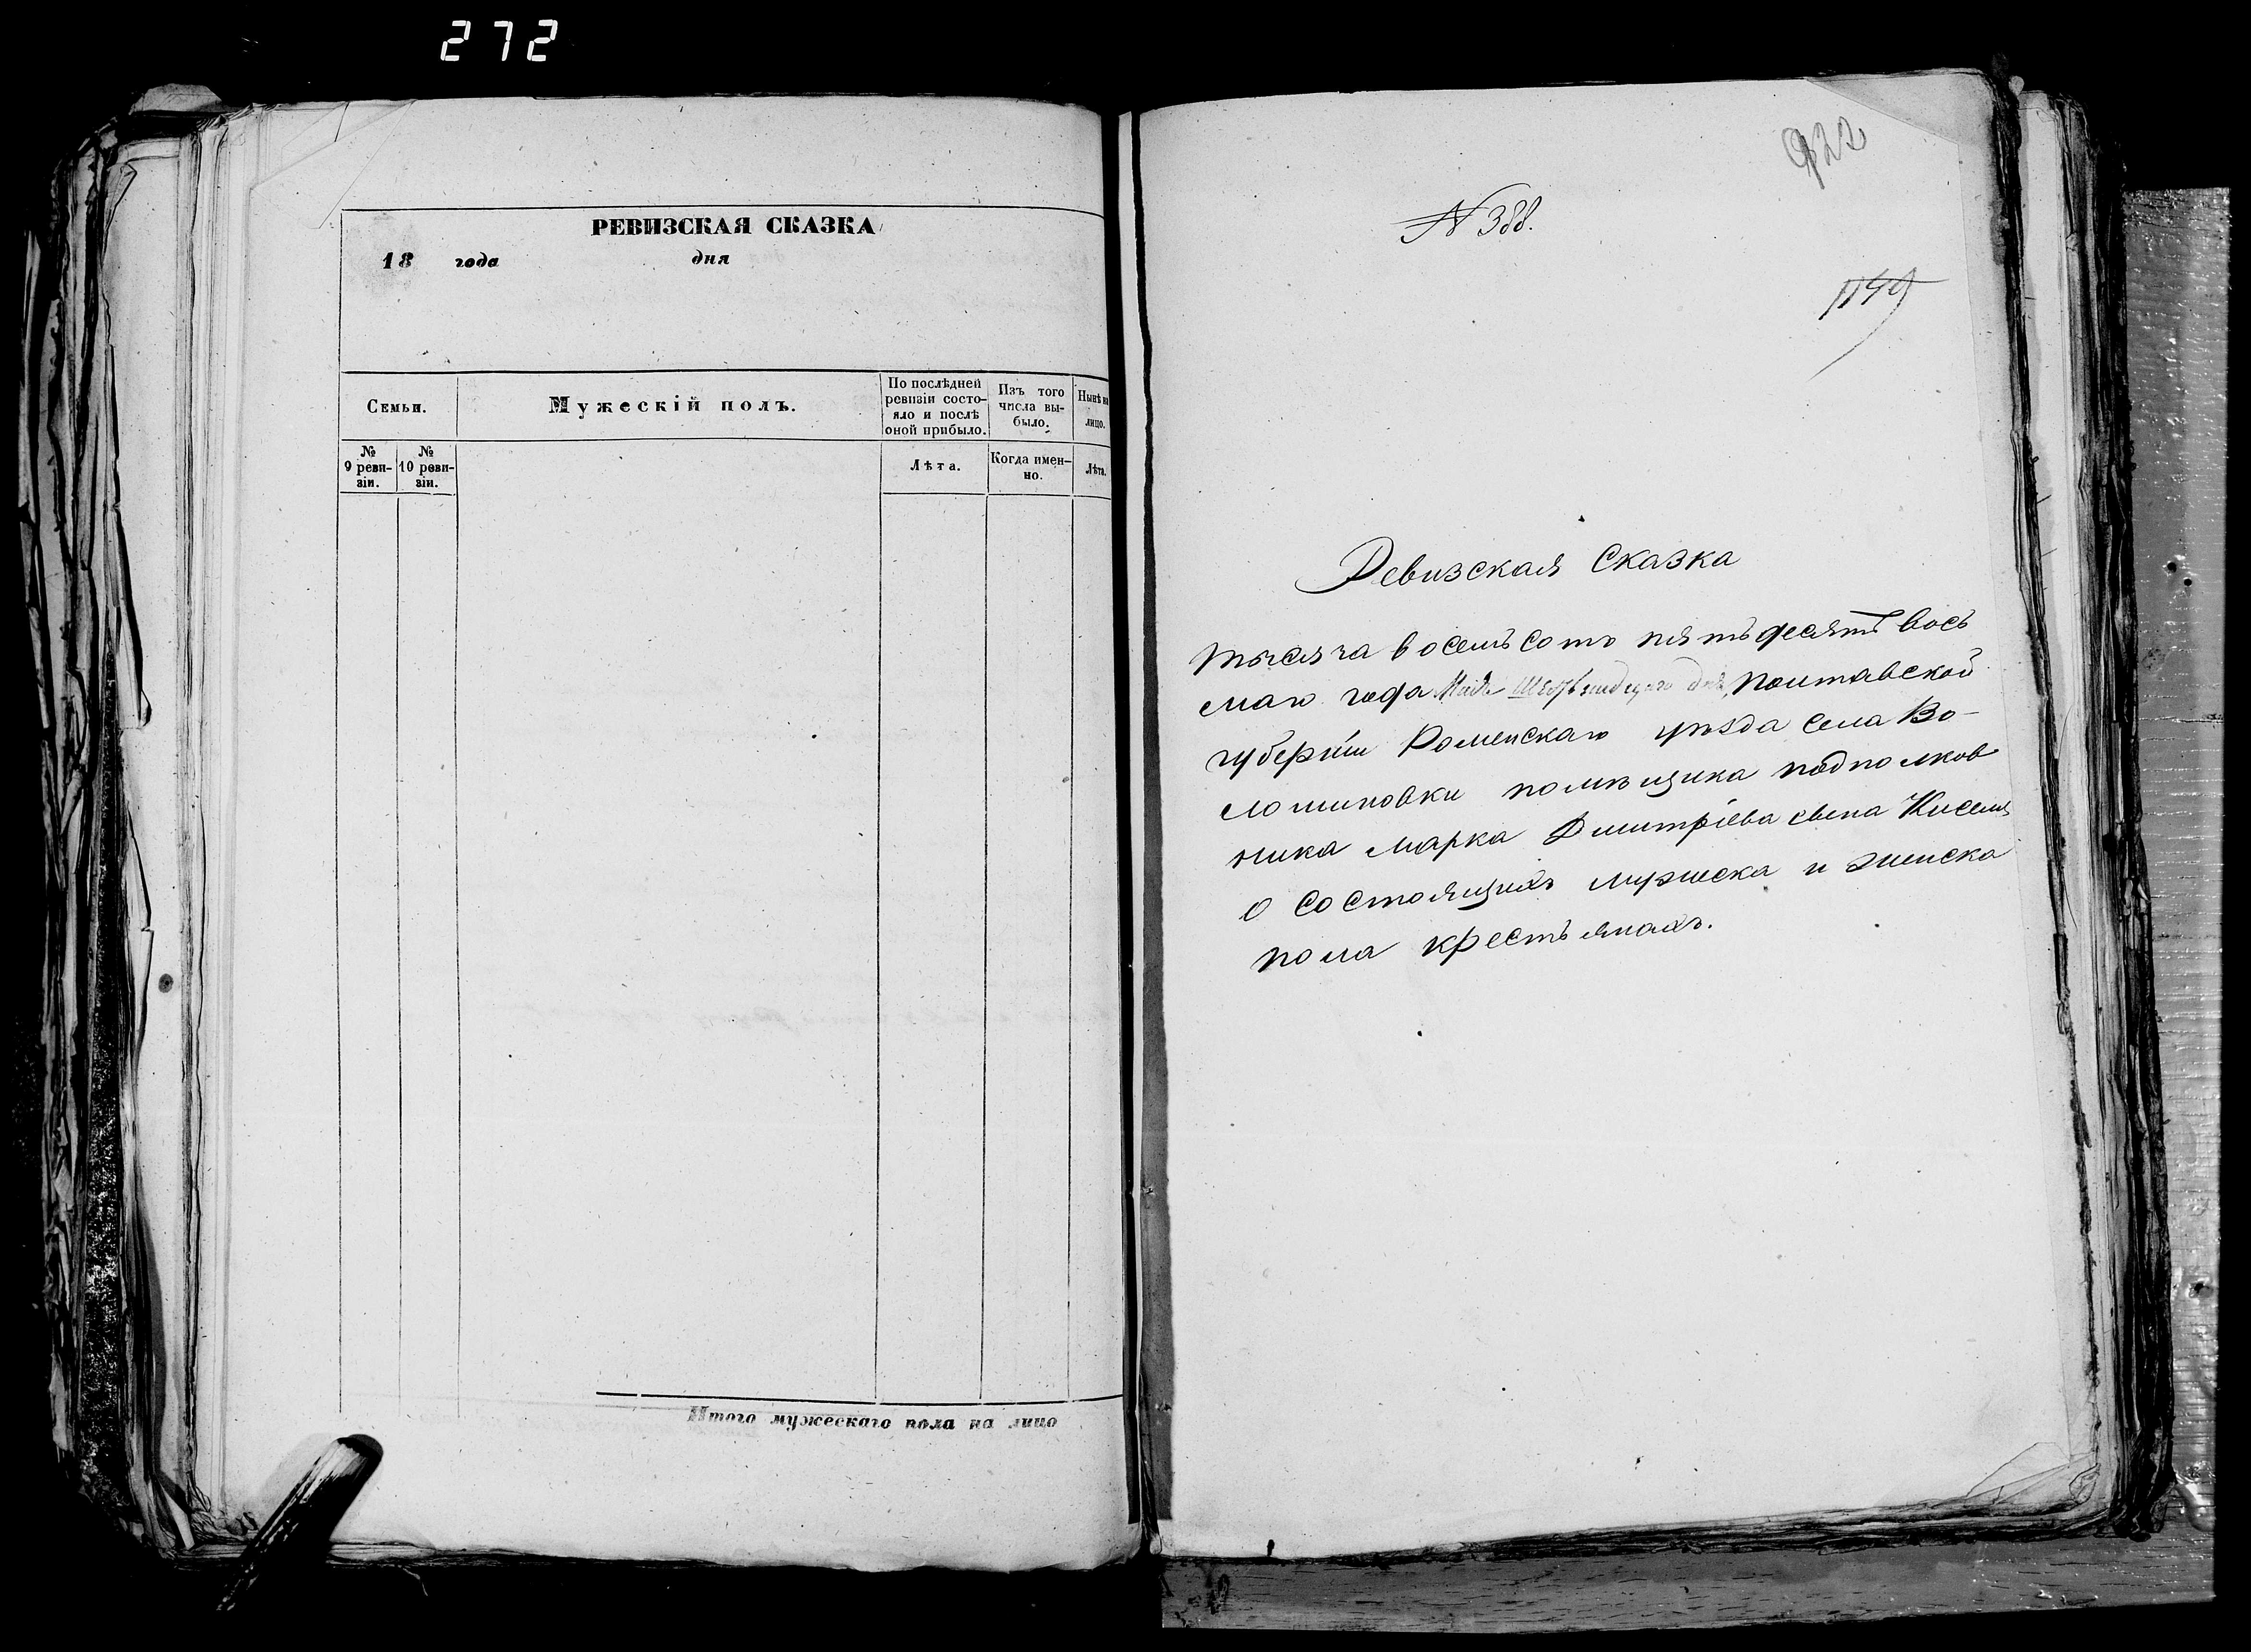 272
РЕВИЗСКАЯ СКАЗКА
18 года дня
Семьи.
Мужескій полъ.
По послѣдней ревизіи состо-
яло и послѣ
оной прибыло.
Изъ того
числа вы-
было.
Нынѣ на
лицо.
№
9 реви-
зіи.
№
10 реви-
зіи.
Лѣта.
Когда имен-
но.
Лѣта.
Итого мужескаго пола на лицо
922
N 388.
1149
Ревизская Сказка
тысяча восемьсотъ пятьдесятъ вось
маго года Маія дня, Полтавской
губерніи Роменскаго уѣзда села Во-
лошиновки помѣщика подполков
ника Марка Дмитріева сына Киселя
о состоящихъ мужеска и женска
пола крестьянахъ.